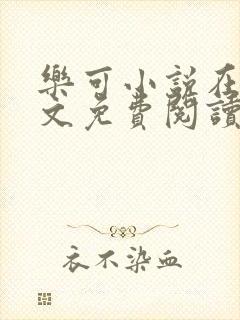 樂可小說在
文免費閱讀
衣不染血